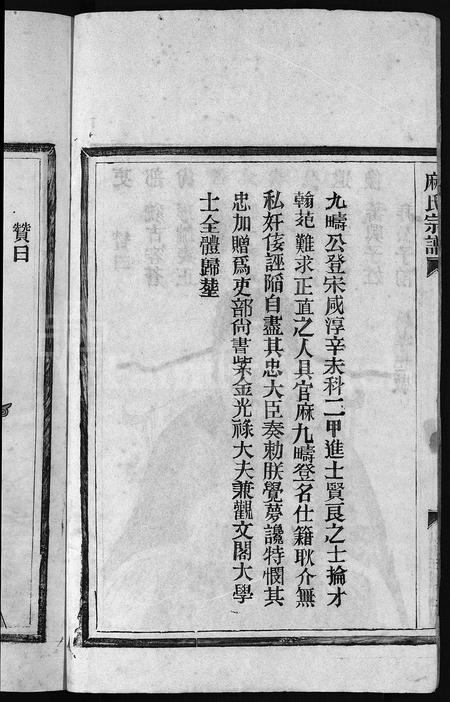 麻氏宗譜
九疇公登宋咸淳辛未科二甲進士賢良之士掄才
翰苑難求正直之人具官麻九疇登名仕籍耿介無
私奸倭誣陷自盡其忠大臣奏勅朕覺夢讒特憫其
忠加贈爲吏部尚書紫金光祿大夫兼觀文閣大學
士全體歸塋
贊曰